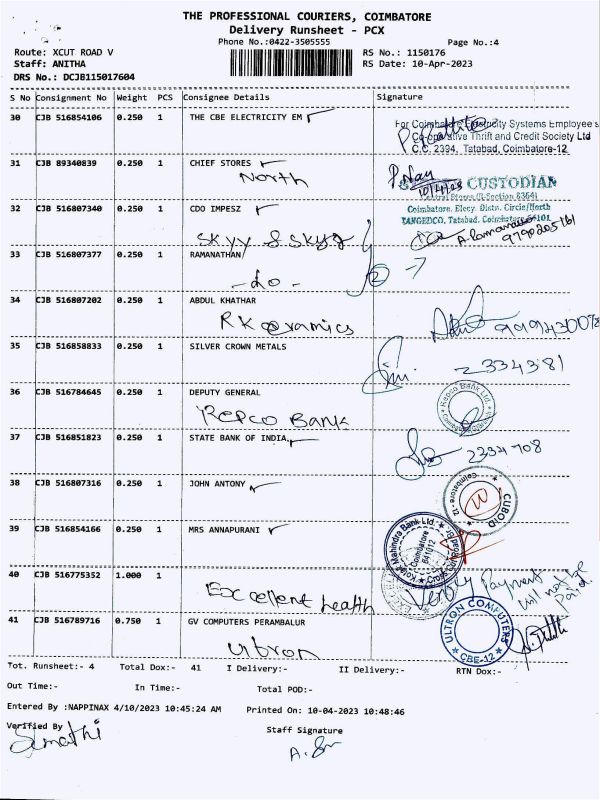 THE PROFESSIONAL COURIERS, COIMBATORE
Delivery Runsheet - PCX
Phone No.:0422-3505555
Page No.:4
Route: XCUT ROAD V
RS No.: 1150176
Staff: ANITHA
RS Date: 10-Apr-2023
DRS No.: DCJB115017604
S No Consignment No Weight PCS Consignee Details Signature
30 CJB 516854106 0.250 1 THE CBE ELECTRICITY EM
For Coimbatore Electricity Systems Employee's
Co-operative Thrift and Credit Society Ltd
C.C. 2394, Tatabad, Coimbatore-12
31 CJB 89340839 0.250 1 CHIEF STORES
North
10/4/23
CUSTODIAN
Central Stores (I-Section 8364)
32 CJB 516807340 0.250 1 CDO IMPESZ
Coimbatore. Elecy. Distn. Circle/North
TANGEDCO, Tatabad, Coimbatore
Skyy & Skyz
9790205161
33 CJB 516807377 0.250 1 RAMANATHAN
-do-
34 CJB 516807202 0.250 1 ABDUL KHATHAR
RK ceramics
35 CJB 516858833 0.250 1 SILVER CROWN METALS
2334381
36 CJB 516784645 0.250 1 DEPUTY GENERAL
Repco Bank
Repco Bank Ltd.
37 CJB 516851823 0.250 1 STATE BANK OF INDIA,
2334708
38 CJB 516807316 0.250 1 JOHN ANTONY
CUBOID
Coimbatore 12
39 CJB 516854166 0.250 1 MRS ANNAPURANI
Kotak Mahindra Bank Ltd.
Coimbatore
641012
40 CJB 516775352 1.000 1
Excellent health
Verify Payment
will not be
Paid.
41 CJB 516789716 0.750 1 GV COMPUTERS PERAMBALUR
Ultron
ULTRON COMPUTERS
CBE-12
Tot. Runsheet:- 4 Total Dox:- 41 I Delivery:- II Delivery:- RTN Dox:-
Out Time:- In Time:- Total POD:-
Entered By :NAPPINAX 4/10/2023 10:45:24 AM Printed On: 10-04-2023 10:48:46
Verified By
Staff Signature